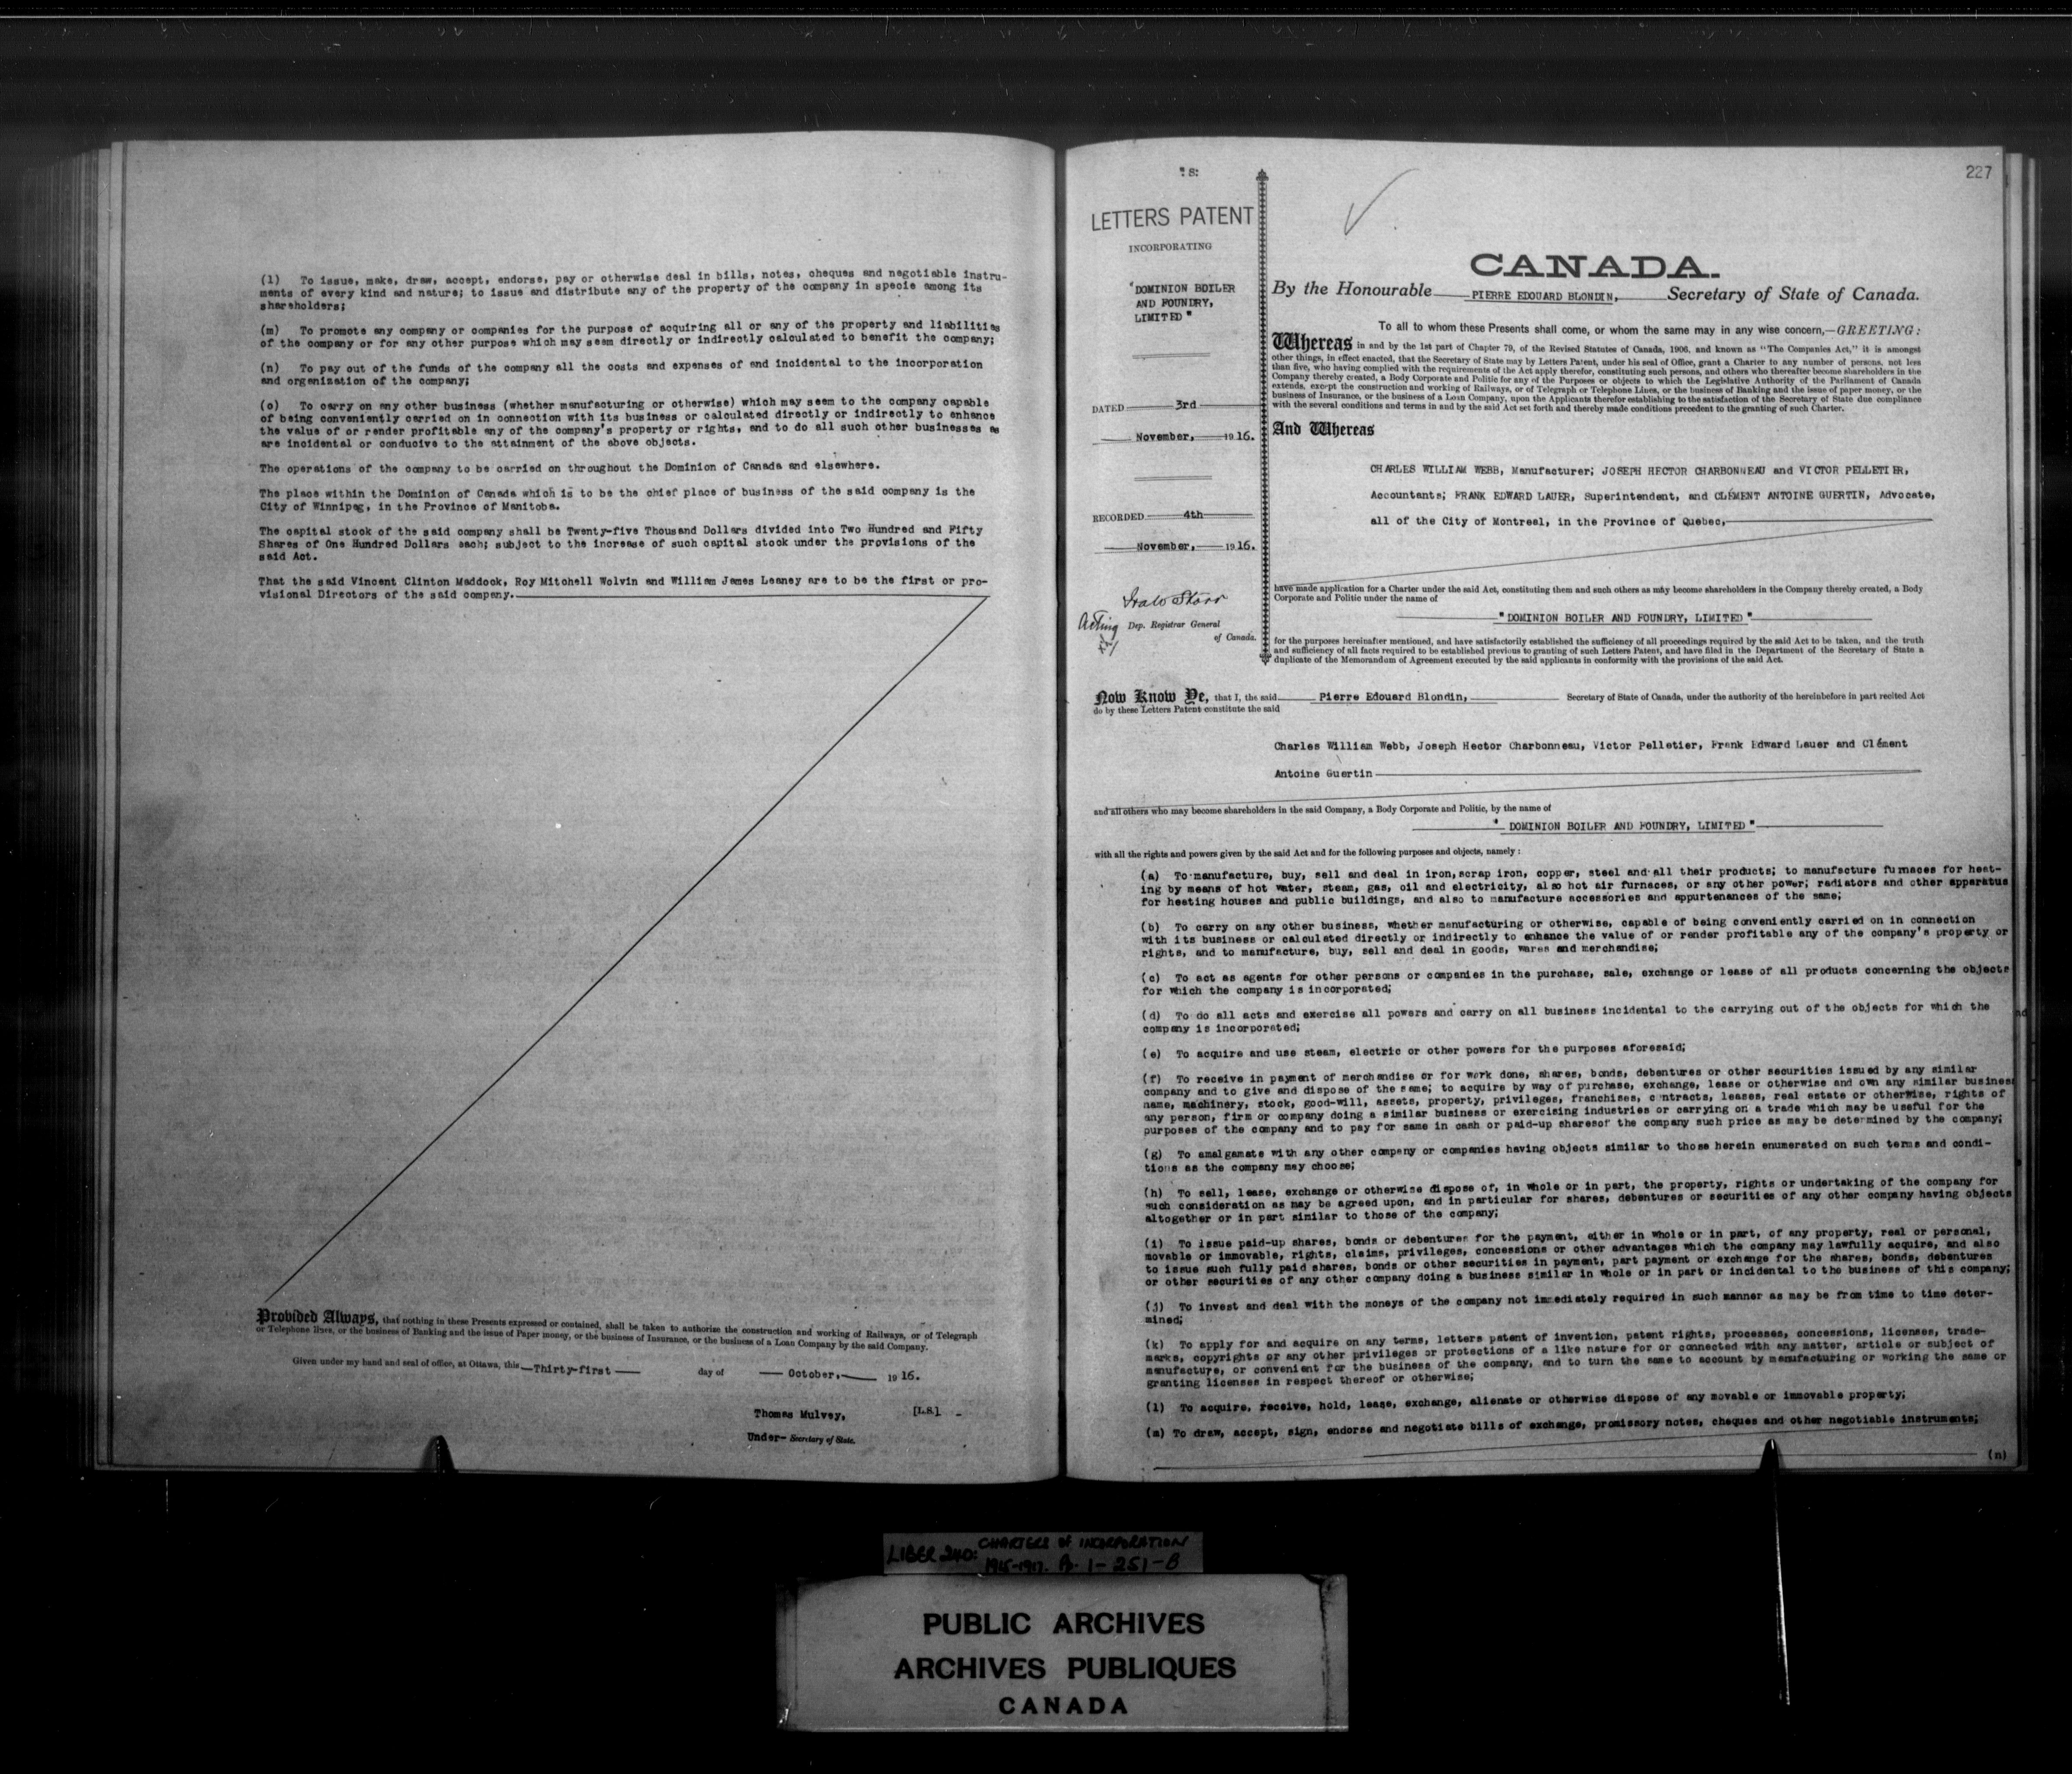 (l) To issue, make, draw, accept, endorse, pay or otherwise deal in bills, notes, cheques and negotiable instru-
ments of every kind and nature; to issue and distribute any of the property of the company in specie among its
shareholders;
(m) To promote any company or companies for the purpose of acquiring all or any of the property and liabilities
of the company or for any other purpose which may seem directly or indirectly calculated to benefit the company;
(n) To pay out of the funds of the company all the costs and expenses of and incidental to the incorporation
and organization of the company;
(o) To carry on any other business (whether manufacturing or otherwise) which may seem to the company capable
of being conveniently carried on in connection with its business or calculated directly or indirectly to enhance
the value of or render profitable any of the company's property or rights, and to do all such other businesses as
are incidental or conducive to the attainment of the above objects.
The operations of the company to be carried on throughout the Dominion of Canada and elsewhere.
The place within the Dominion of Canada which is to be the chief place of business of the said company is the
City of Winnipeg, in the Province of Manitoba.
The capital stock of the said company shall be Twenty-five Thousand Dollars divided into Two Hundred and Fifty
Shares of One Hundred Dollars each; subject to the increase of such capital stock under the provisions of the
said Act.
That the said Vincent Clinton Maddock, Roy Mitchell Wolvin and William James Leaney are to be the first or pro-
visional Directors of the said company.
Provided Always, that nothing in these Presents expressed or contained, shall be taken to authorize the construction and working of Railways, or of Telegraph
or Telephone lines, or the business of Banking and the issue of Paper money, or the business of Insurance, or the business of a Loan Company by the said Company.
Given under my hand and seal of office, at Ottawa, this Thirty-first day of October, 1916.
Thomas Mulvey, [L.S.]
Under- Secretary of State.
227
LETTERS PATENT
INCORPORATING
"DOMINION BOILER
AND FOUNDRY,
LIMITED"
DATED 3rd
November, 1916.
RECORDED 4th
November, 1916.
Acting Dep. Registrar General
of Canada.
CANADA.
By the Honourable PIERRE EDOUARD BLONDIN, Secretary of State of Canada.
To all to whom these Presents shall come, or whom the same may in any wise concern,—GREETING:
Whereas in and by the 1st part of Chapter 79, of the Revised Statutes of Canada, 1906, and known as "The Companies Act," it is amongst
other things, in effect enacted, that the Secretary of State may by Letters Patent, under his seal of Office, grant a Charter to any number of persons, not less
than five, who having complied with the requirements of the Act apply therefor, constituting such persons, and others who thereafter become shareholders in the
Company thereby created, a Body Corporate and Politic for any of the Purposes or objects to which the Legislative Authority of the Parliament of Canada
extends, except the construction and working of Railways, or of Telegraph or Telephone Lines, or the business of Banking and the issue of paper money, or the
business of Insurance, or the business of a Loan Company, upon the Applicants therefor establishing to the satisfaction of the Secretary of State due compliance
with the several conditions and terms in and by the said Act set forth and thereby made conditions precedent to the granting of such Charter.
And Whereas
CHARLES WILLIAM WEBB, Manufacturer; JOSEPH HECTOR CHARBONNEAU and VICTOR PELLETIER,
Accountants; FRANK EDWARD LAUER, Superintendent, and CLÉMENT ANTOINE GUERTIN, Advocate,
all of the City of Montreal, in the Province of Quebec,
have made application for a Charter under the said Act, constituting them and such others as may become shareholders in the Company thereby created, a Body
Corporate and Politic under the name of
"DOMINION BOILER AND FOUNDRY, LIMITED"
for the purposes hereinafter mentioned, and have satisfactorily established the sufficiency of all proceedings required by the said Act to be taken, and the truth
and sufficiency of all facts required to be established previous to granting of such Letters Patent, and have filed in the Department of the Secretary of State a
duplicate of the Memorandum of Agreement executed by the said applicants in conformity with the provisions of the said Act.
Now Know Ye, that I, the said Pierre Edouard Blondin, Secretary of State of Canada, under the authority of the hereinbefore in part recited Act
do by these Letters Patent constitute the said
Charles William Webb, Joseph Hector Charbonneau, Victor Pelletier, Frank Edward Lauer and Clément
Antoine Guertin
and all others who may become shareholders in the said Company, a Body Corporate and Politic, by the name of
"DOMINION BOILER AND FOUNDRY, LIMITED"
with all the rights and powers given by the said Act and for the following purposes and objects, namely :
(a) To manufacture, buy, sell and deal in iron, scrap iron, copper, steel and all their products; to manufacture furnaces for heat-
ing by means of hot water, steam, gas, oil and electricity, also hot air furnaces, or any other power; radiators and other apparatus
for heating houses and public buildings, and also to manufacture accessories and appurtenances of the same;
(b) To carry on any other business, whether manufacturing or otherwise, capable of being conveniently carried on in connection
with its business or calculated directly or indirectly to enhance the value of or render profitable any of the company's property or
rights, and to manufacture, buy, sell and deal in goods, wares and merchandise;
(c) To act as agents for other persons or companies in the purchase, sale, exchange or lease of all products concerning the objects
for which the company is incorporated;
(d) To do all acts and exercise all powers and carry on all business incidental to the carrying out of the objects for which the
company is incorporated;
(e) To acquire and use steam, electric or other powers for the purposes aforesaid;
(f) To receive in payment of merchandise or for work done, shares, bonds, debentures or other securities issued by any similar
company and to give and dispose of the same; to acquire by way of purchase, exchange, lease or otherwise and own any similar business
name, machinery, stock, good-will, assets, property, privileges, franchises, c ntracts, leases, real estate or otherwise, rights of
any person, firm or company doing a similar business or exercising industries or carrying on a trade which may be useful for the
purposes of the company and to pay for same in cash or paid-up sharesof the company such price as may be determined by the company;
(g) To amalgamate with any other company or companies having objects similar to those herein enumerated on such terms and condi-
tions as the company may choose;
(h) To sell, lease, exchange or otherwise dispose of, in whole or in part, the property, rights or undertaking of the company for
such consideration as may be agreed upon, and in particular for shares, debentures or securities of any other company having objects
altogether or in part similar to those of the company;
(i) To issue paid-up shares, bonds or debentures for the payment, either in whole or in part, of any property, real or personal,
movable or immovable, rights, claims, privileges, concessions or other advantages which the company may lawfully acquire, and also
to issue such fully paid shares, bonds or other securities in payment, part payment or exchange for the shares, bonds, debentures
or other securities of any other company doing a business similar in whole or in part or incidental to the business of this company;
(j) To invest and deal with the moneys of the company not immediately required in such manner as may be from time to time deter-
mined;
(k) To apply for and acquire on any terms, letters patent of invention, patent rights, processes, concessions, licenses, trade-
marks, copyrights or any other privileges or protections of a like nature for or connected with any matter, article or subject of
manufacture, or convenient for the business of the company, and to turn the same to account by manufacturing or working the same or
granting licenses in respect thereof or otherwise;
(l) To acquire, receive, hold, lease, exchange, alienate or otherwise dispose of any movable or immovable property;
(m) To draw, accept, sign, endorse and negotiate bills of exchange, promissory notes, cheques and other negotiable instruments;
(n)
LIBER 240: CHARTERS OF INCORPORATION
1915-1917. Pp. 1-251-B
PUBLIC ARCHIVES
ARCHIVES PUBLIQUES
CANADA